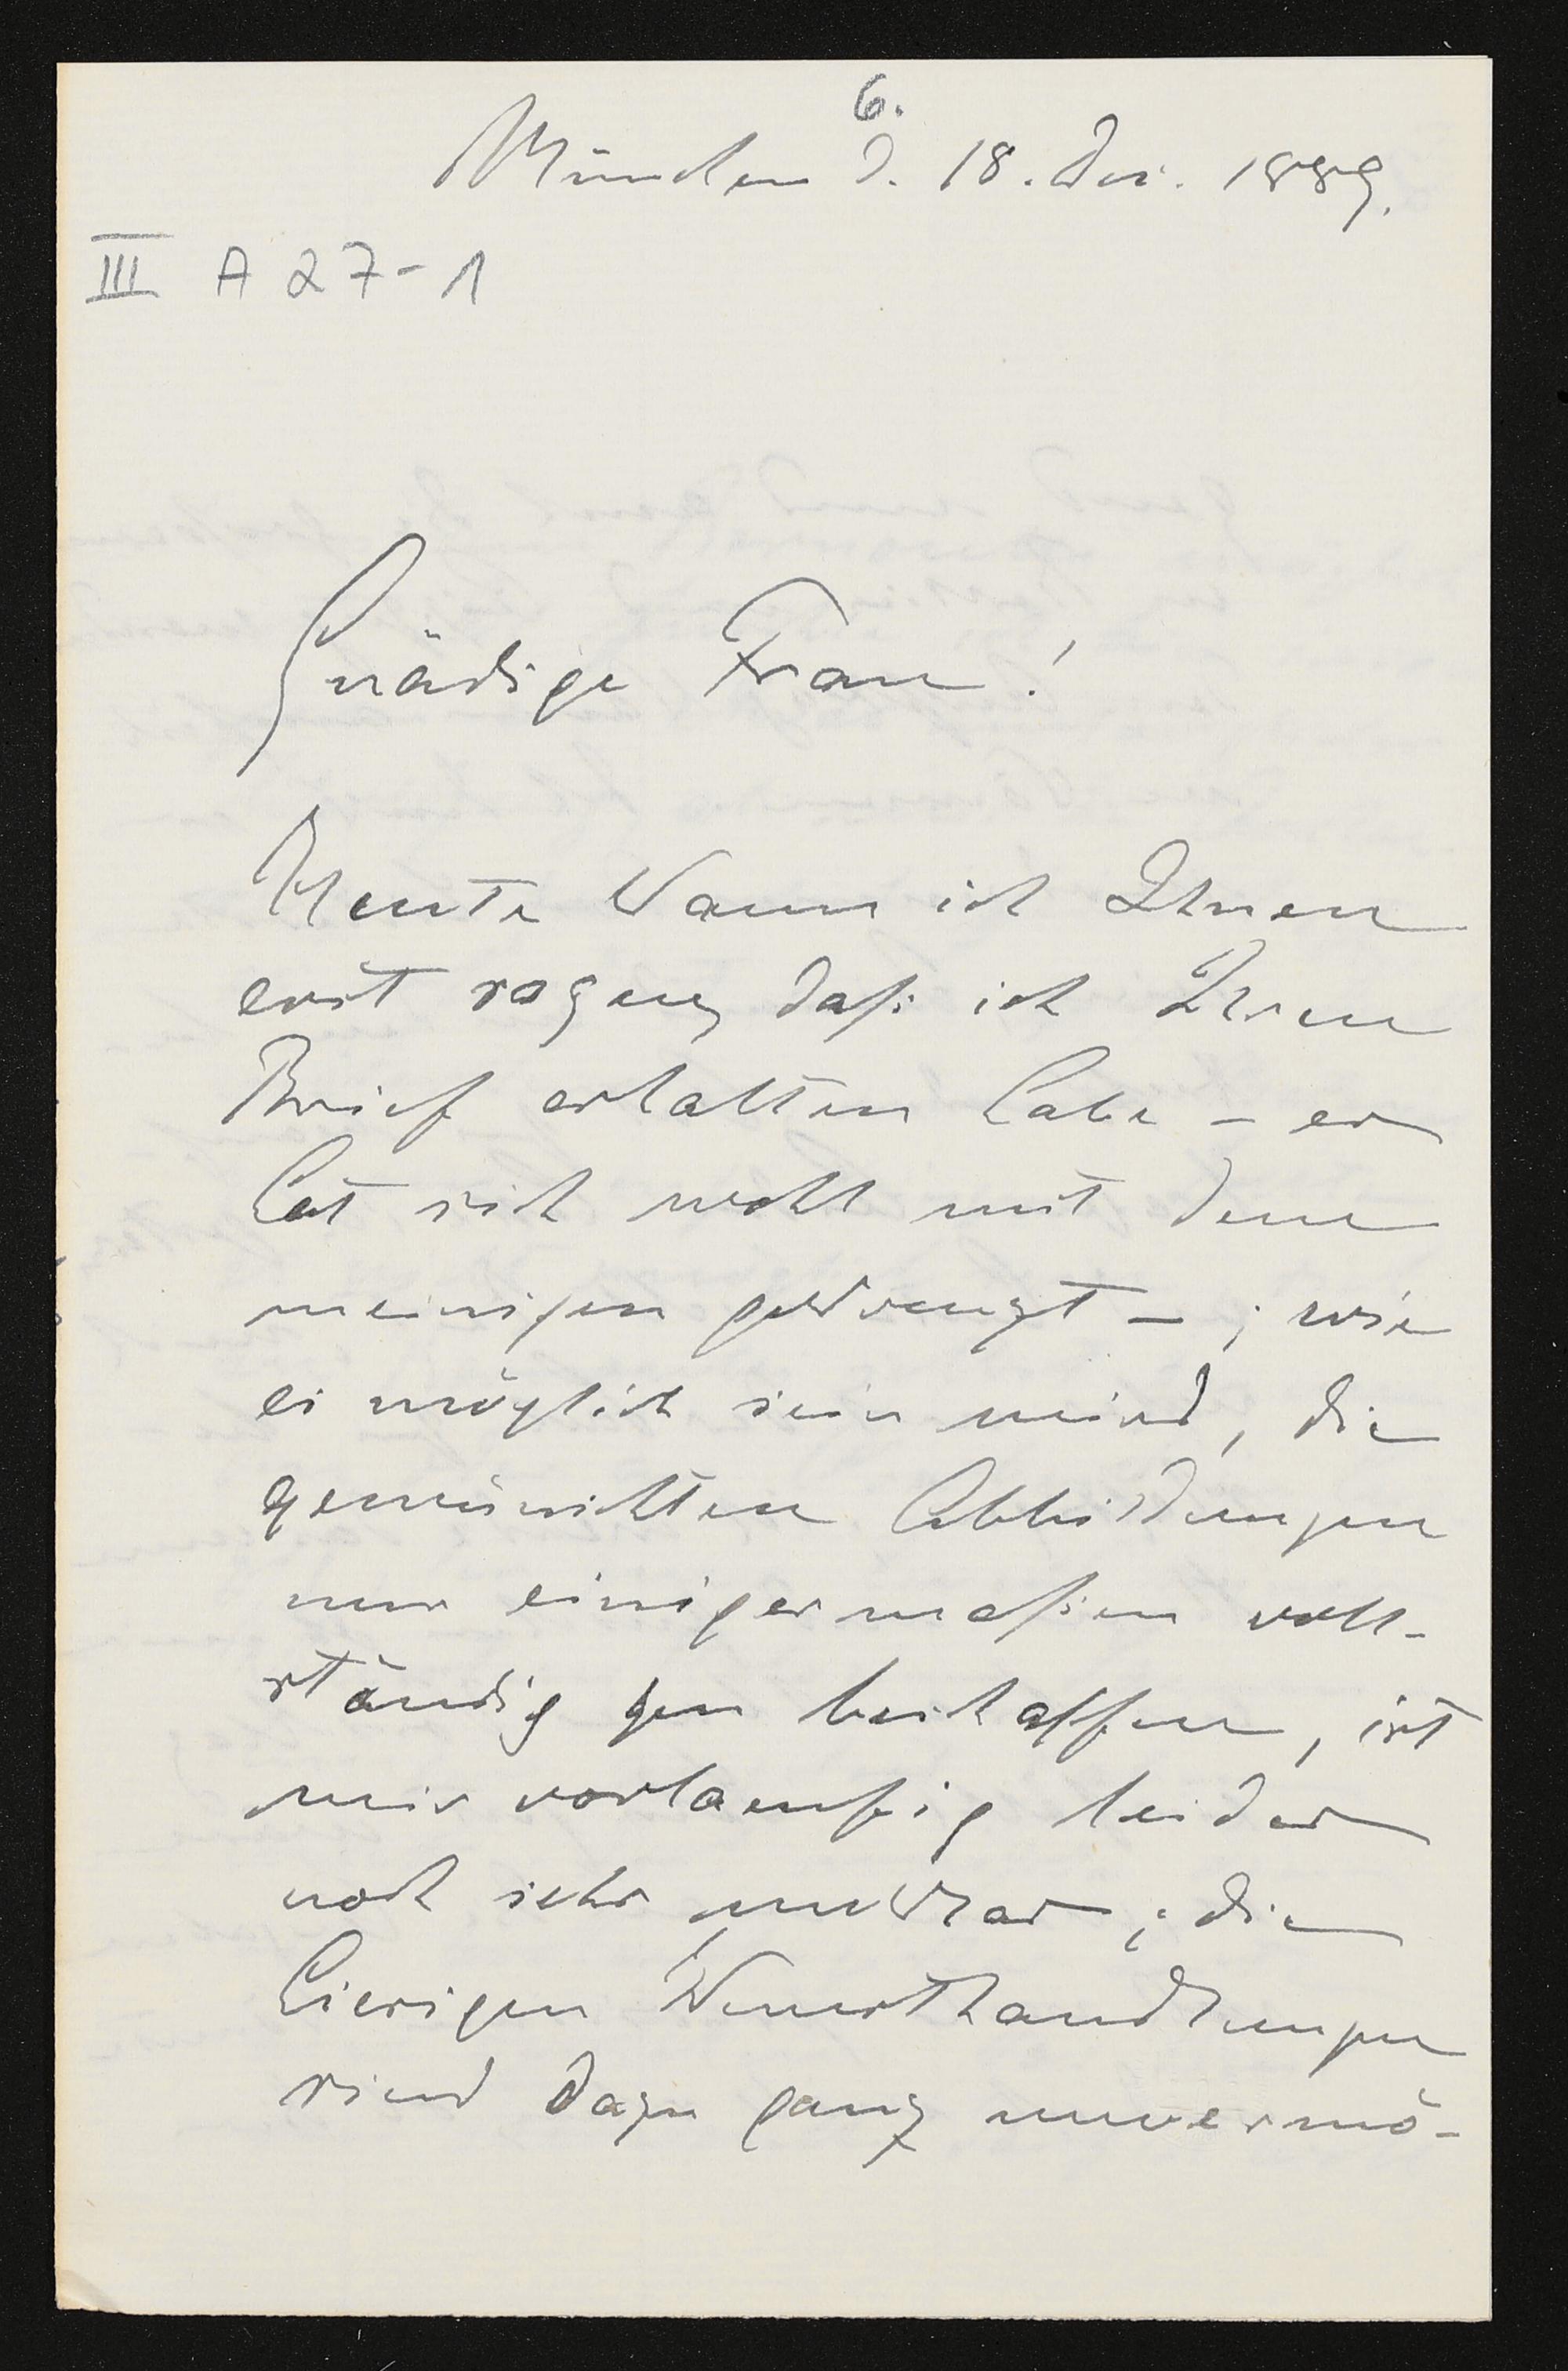 6.
München d. 18. Dez. 1889.
III A 27-1
Gnädige Frau!
Heute kann ich Ihnen
erst sagen, daß ich Ihren
Brief erhalten habe – er
hat sich wohl mit dem
meinigen gekreuzt –; wie
es möglich sein wird, die
gewünschten Abbildungen
nur einigermaßen voll-
ständig zu beschaffen, ist
mir vorlaeufig leider
noch sehr unklar; die
hiesigen Kunsthandlungen
sind dazu ganz unvermö-